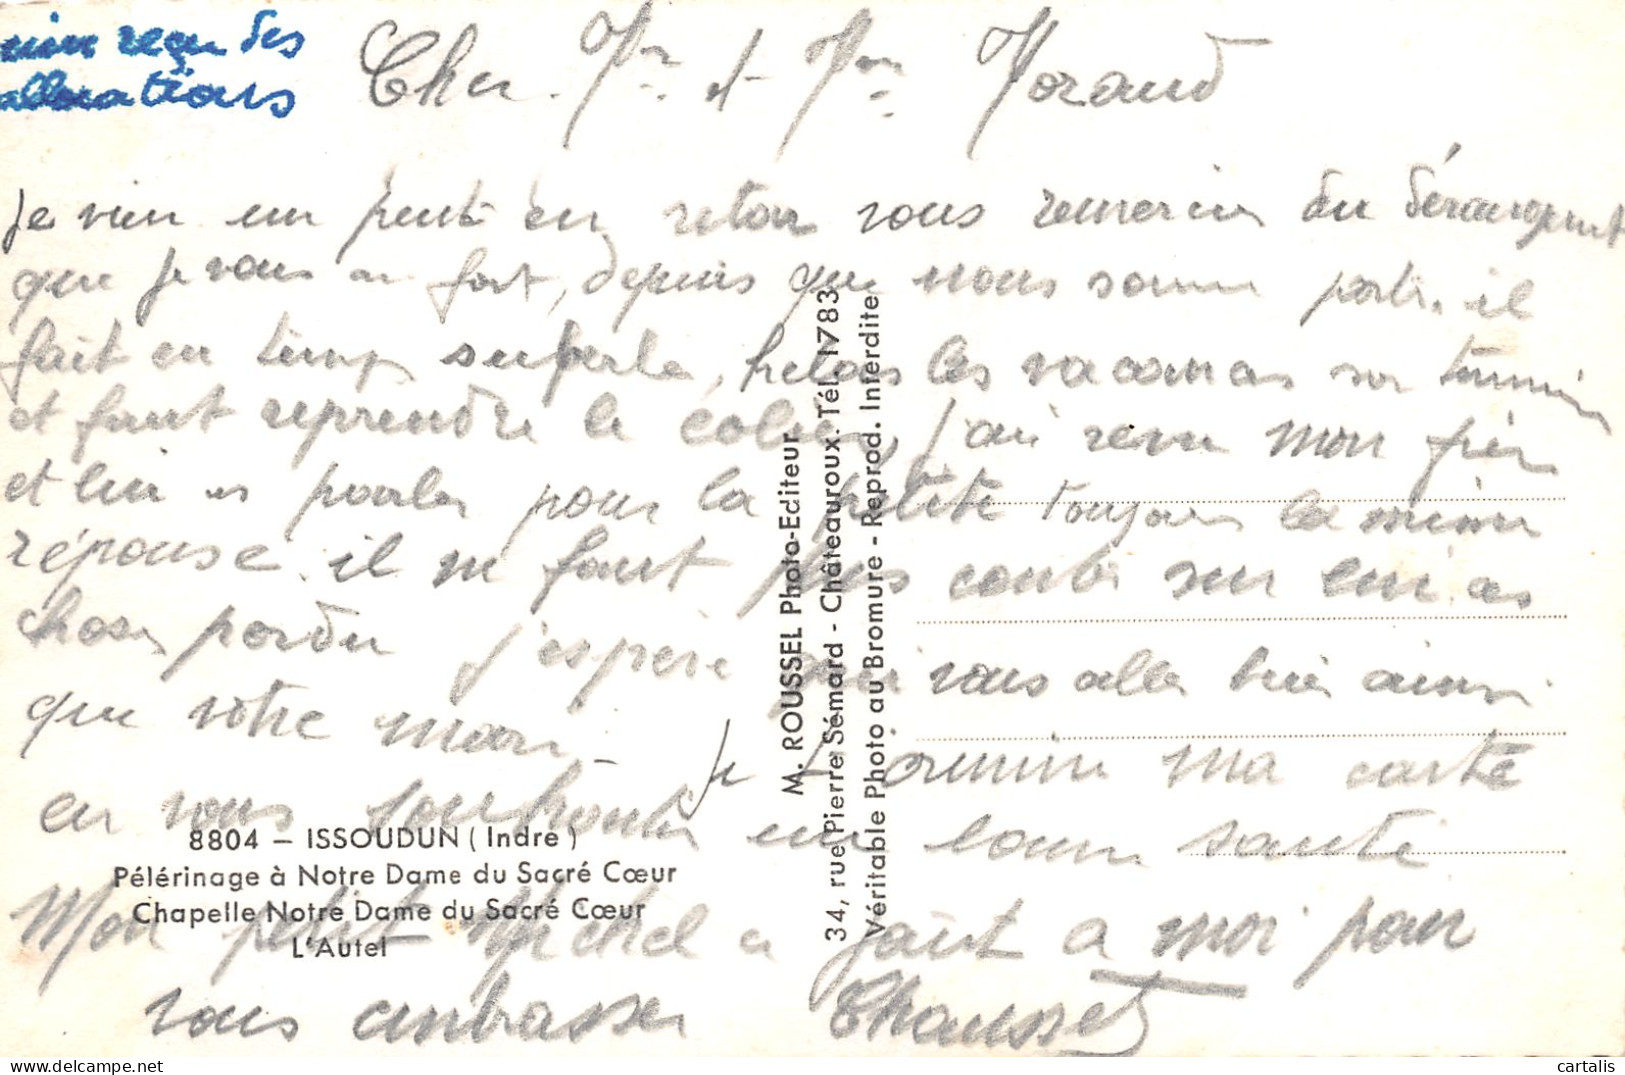 reçu des
allocations
Cher Mr et Mme Morand
Je vien un peut en retar vous remercier du dérangement
que je vous ai fait, depuis que nous somme parti il
fait un temps superbe, helas les vacances son terminer
et faut reprendre le colier, j'ai revu mon frère
et lui es parler pour la petite toujours la même
réponse il ne faut plus conter sur lui as
chose perdu j'espère que vous aller bien ainsi
que votre mari - Je termine ma carte
en vous souhaiter une bonne santé
Mon petit Michel a fait a moi pour
vous embrasser Chausset
8804 — ISSOUDUN ( Indre )
Pélérinage à Notre Dame du Sacré Cœur
Chapelle Notre Dame du Sacré Cœur
L'Autel
M. ROUSSEL Photo-Editeur
34, rue Pierre Sémard - Châteauroux. Tél. 1783
Véritable Photo au Bromure - Reprod. Interdite
cartalis